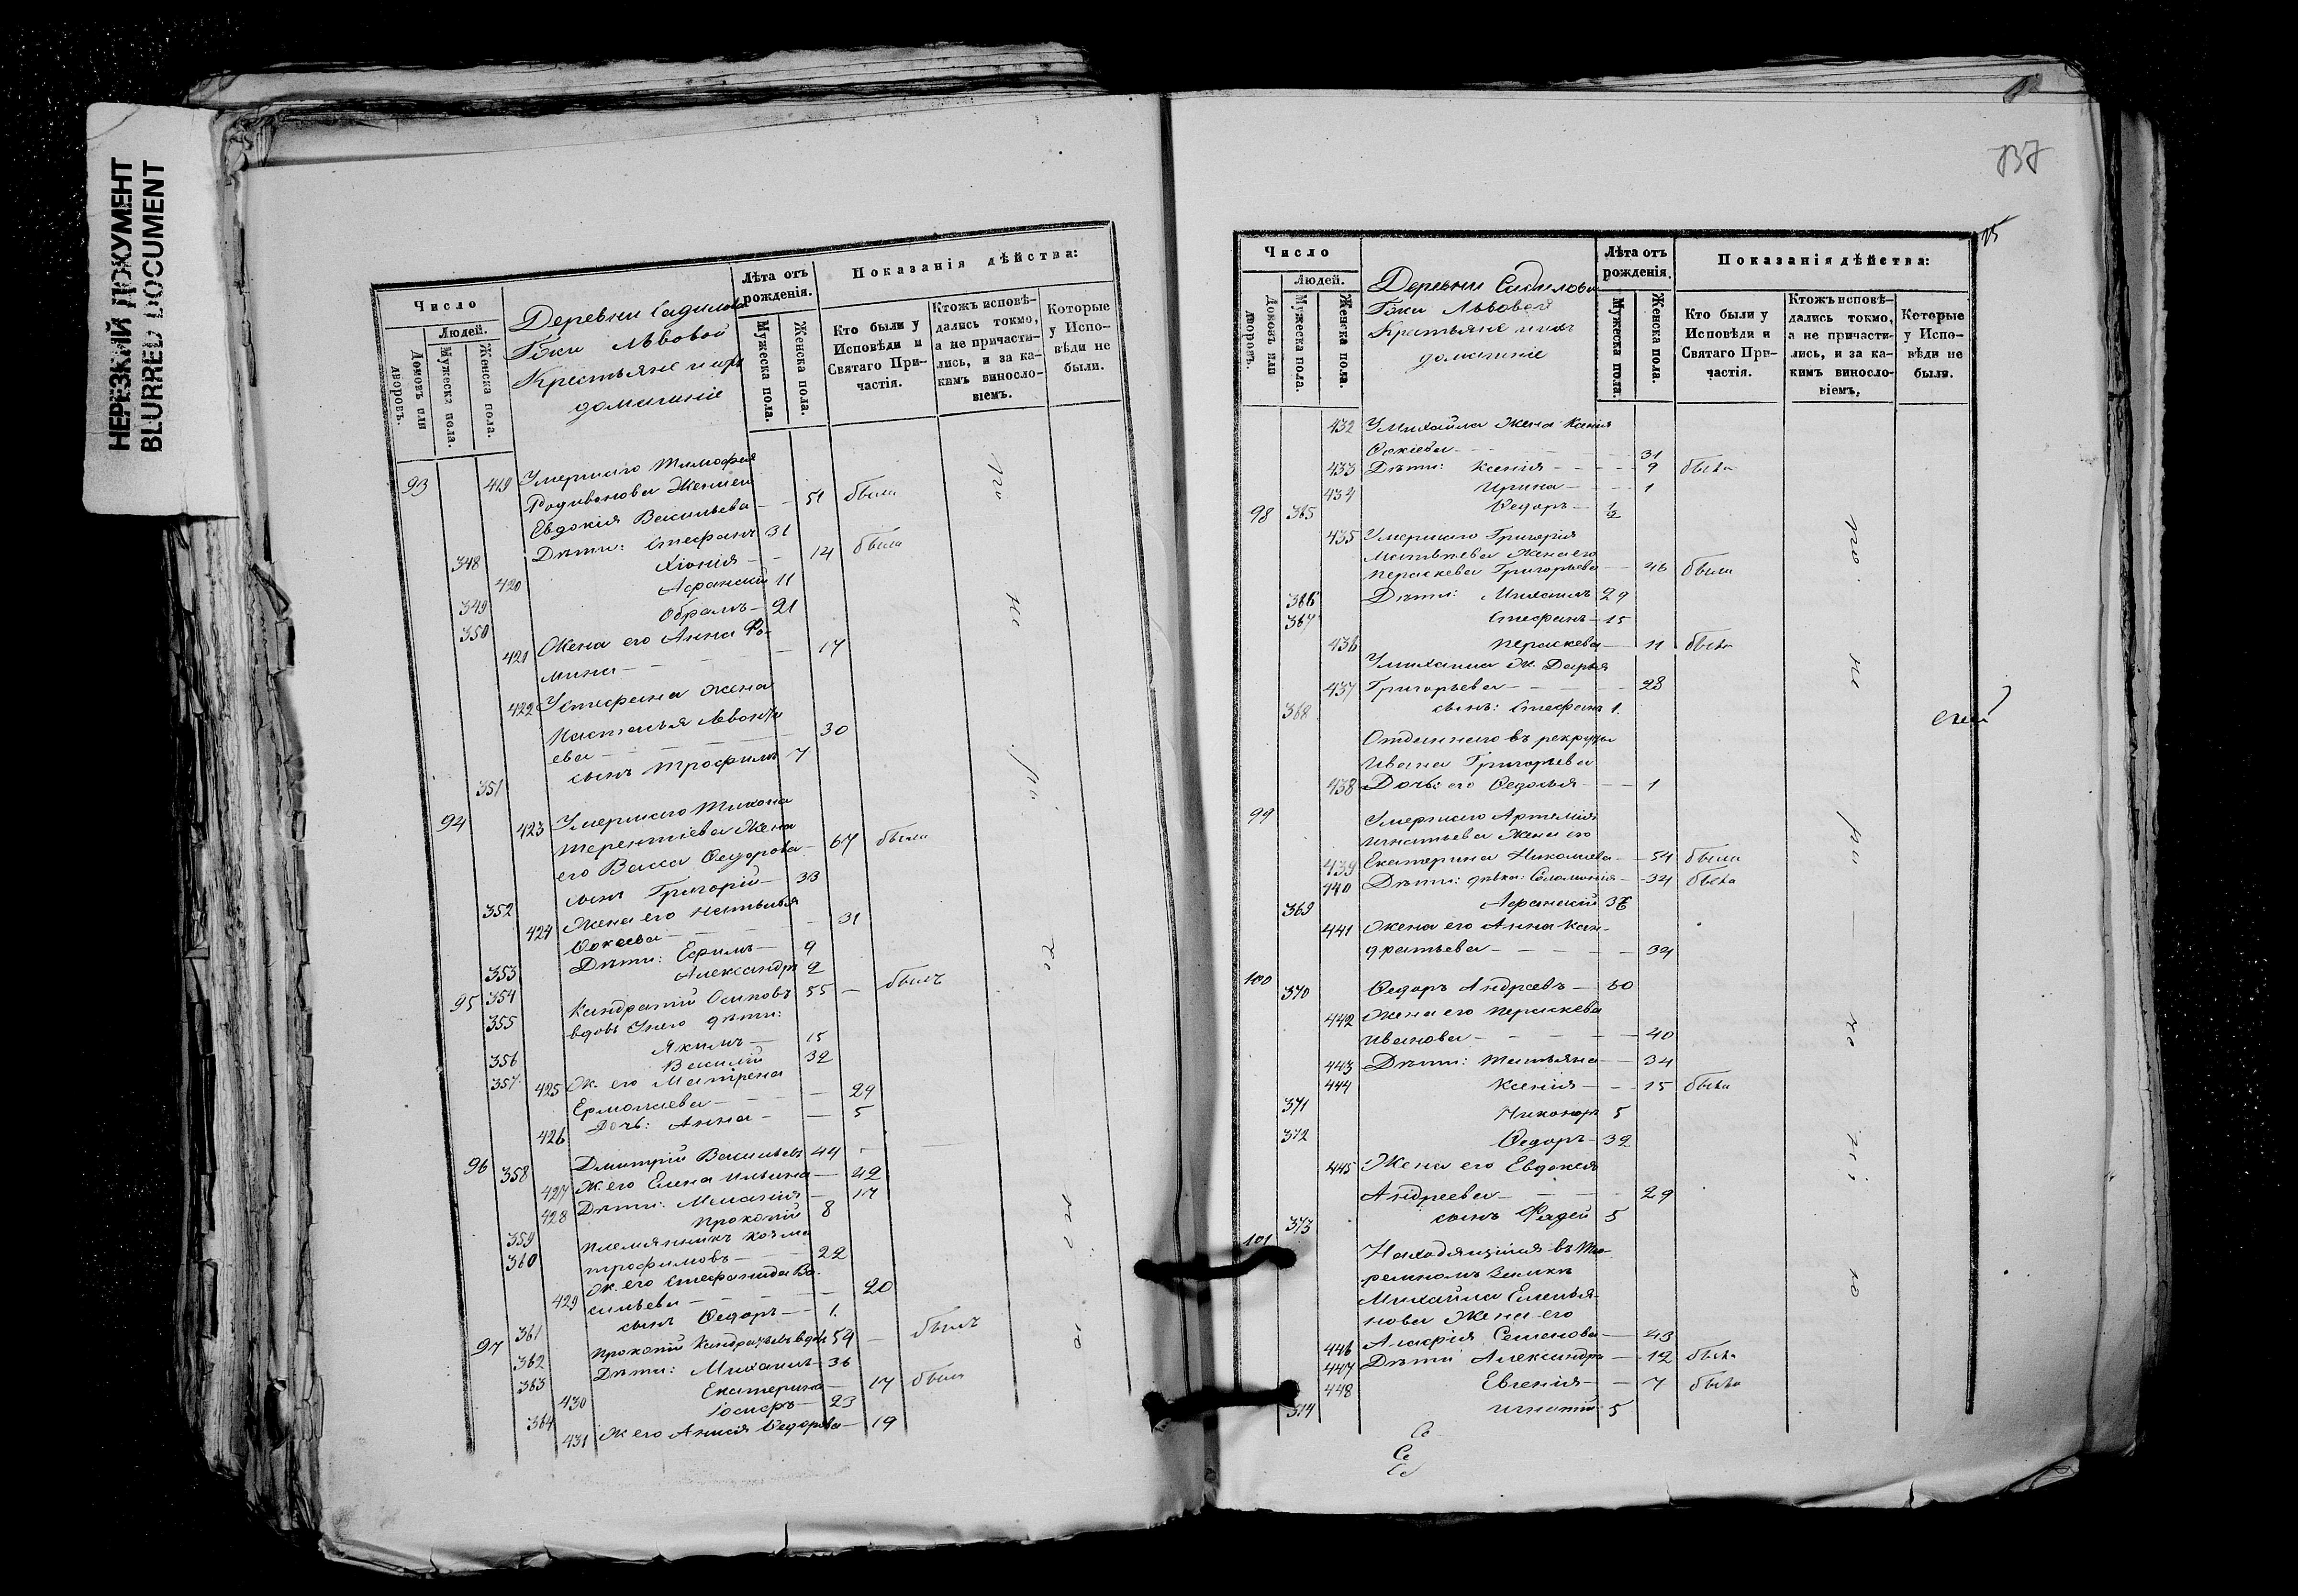 НЕРЕЗКИЙ ДОКУМЕНТ
BLURRED DOCUMENT
Число
Людей.
Домовъ или дворовъ.
Мужеска пола.
Женска пола.
Деревни Садилова
Гжи Львовой
Крестьяне и ихъ
домашніе
Лѣта отъ рожденія.
Мужеска пола.
Женска пола.
Показанія дѣйства:
Кто были у Исповѣди и Святаго Причастія.
Ктожъ исповѣдались токмо, а не причастились, и за какимъ винословіемъ.
Которые у Исповѣди не были.
93 419 Умершаго Тимофея
Родивонова Жена
Евдокія Васильева — 51 была
348 Дѣти: Стефанъ 31
420 Хіонія — 14 была
349 Афанасій 11
350 Обрамъ — 21
421 Жена его Анна Фо-
мина — 17
422 У Стефана жена
Настасья Левонть
ева — 30
351 сынъ Трофимъ 7
94 423 Умершаго Тихона
Терентіева Жена
его Васса Ѳедорова — 67 была
352 сынъ Григорій — 33
424 Жена его Наталья
Ѳокаева — 31
353 Дѣти: Ефимъ — 9
354 Александръ 2
95 355 Кандратій Осиповъ 55 — былъ
вдовъ У него дѣти:
356 Якимъ — 15
357 Василій 32
425 Ж. его Матрена
Ермолаева — 29
426 Дочь: Анна — 5
96 358 Дмитрій Васильевъ 44
427 Ж. его Елена Ильина — 42
428 Дѣти: Меланія — 17
359 Прокопій 8
360 Племянникъ Козма
Трофимовъ — 22
429 Ж. его Стефанида Ва-
сильева — 20
361 сынъ Ѳедоръ — 1.
97 362 Прокопій Кандратьевъ вдов 59 — былъ
363 Дѣти: Михаилъ — 36
430 Екатерина — 17 была
364 Іосифъ — 23
431 Ж его Анисія Ѳедорова — 19
737
Число
Людей.
Домовъ или дворовъ.
Мужеска пола.
Женска пола.
Деревни Садилова
Гжи Львовой
Крестьяне и ихъ
домашніе
Лѣта отъ рожденія.
Мужеска пола.
Женска пола.
Показанія дѣйства:
Кто были у Исповѣди и Святаго Причастія.
Ктожъ исповѣдались токмо, а не причастились, и за какимъ винословіемъ,
Которые у Исповѣди не были.
432 У Михайла Жена
— 31
433 Дѣти: Ксенія — 9 была
434 Ирина — 1
98 365 Ѳедоръ — ½
435 Умершаго Григорія
Матвѣева Жена его
Пераскева Григорьева — 46 была
366 Дѣти: Михаилъ 29
367 Стефанъ — 15
436 Пераскева — 11 была
У Михаила Ж. Дарья
437 Григорьева — 28
368 сынъ: Стефанъ 1.
Отданнаго въ рекруты
Ивана Григорьева
438 Дочь его Ѳедосья — 1
99 Умершаго Артемія
Игнатьева Жена его
439 Екатерина Николаева — 54 была
440 Дѣти: дѣвка: Соломонія — 34 была
369 Афанасій 36
441 Жена его Анна Кан-
дратьева — 34
100 370 Ѳедоръ Андреевъ — 60
442 Жена его Пераскева
Иванова — 40
443 Дѣти: Татьяна — 34
444 Ксенія — 15 была
371 Никоноръ 5
372 Ѳедоръ — 32
445 Жена его Евдокея
Андреева — 29
373 сынъ Фадей 5
101 Находящійся въ Тю-
ремномъ Замкѣ
Михайла Емелья-
нова Жена его
446 Агафія Семенова — 43
447 Дѣти Александра — 12 была
448 Евгенія — 7 была
374 Игнатій 5